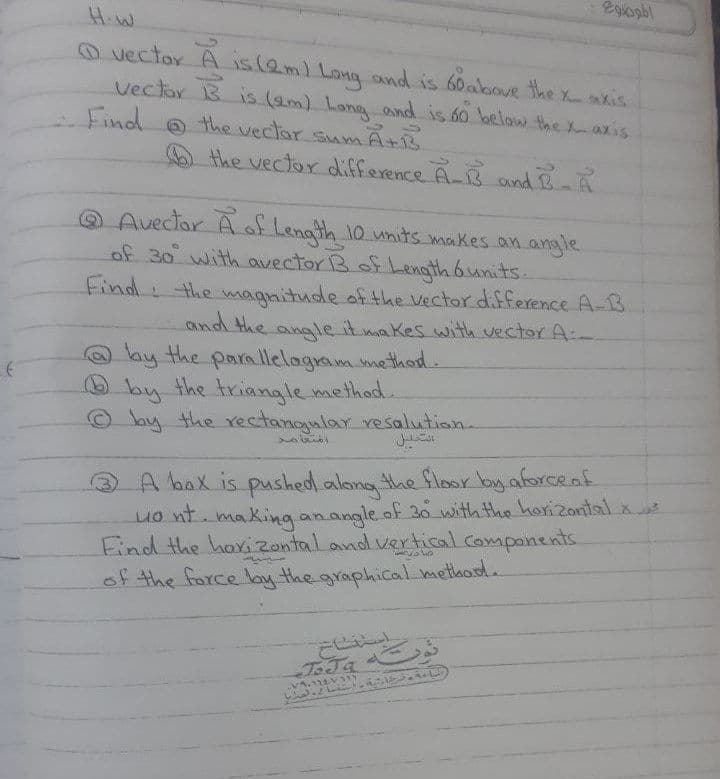 الموضوع :
H.w
① vector A⃗ is (2m) Long and is 60° above the x-axis
vector B⃗ is (2m) Long and is 60° below the x-axis
Find ⓐ the vector sum A⃗+B⃗
ⓑ the vector difference A⃗-B⃗ and B⃗-A⃗
② Avector A⃗ of Length 10 units makes an angle
of 30° with avector B⃗ of Length 6units.
Find : the magnitude of the vector difference A-B
and the angle it makes with vector A:-
ⓐ by the parallelogram method.
ⓑ by the triangle method.
ⓒ by the rectangular resolution.
التحليل
③ A box is pushed along the floor by aforce of
40 nt. making an angle of 30° with the horizontal x
Find the horizontal and vertical components
of the force by the graphical method.
استنساخ
ToTa